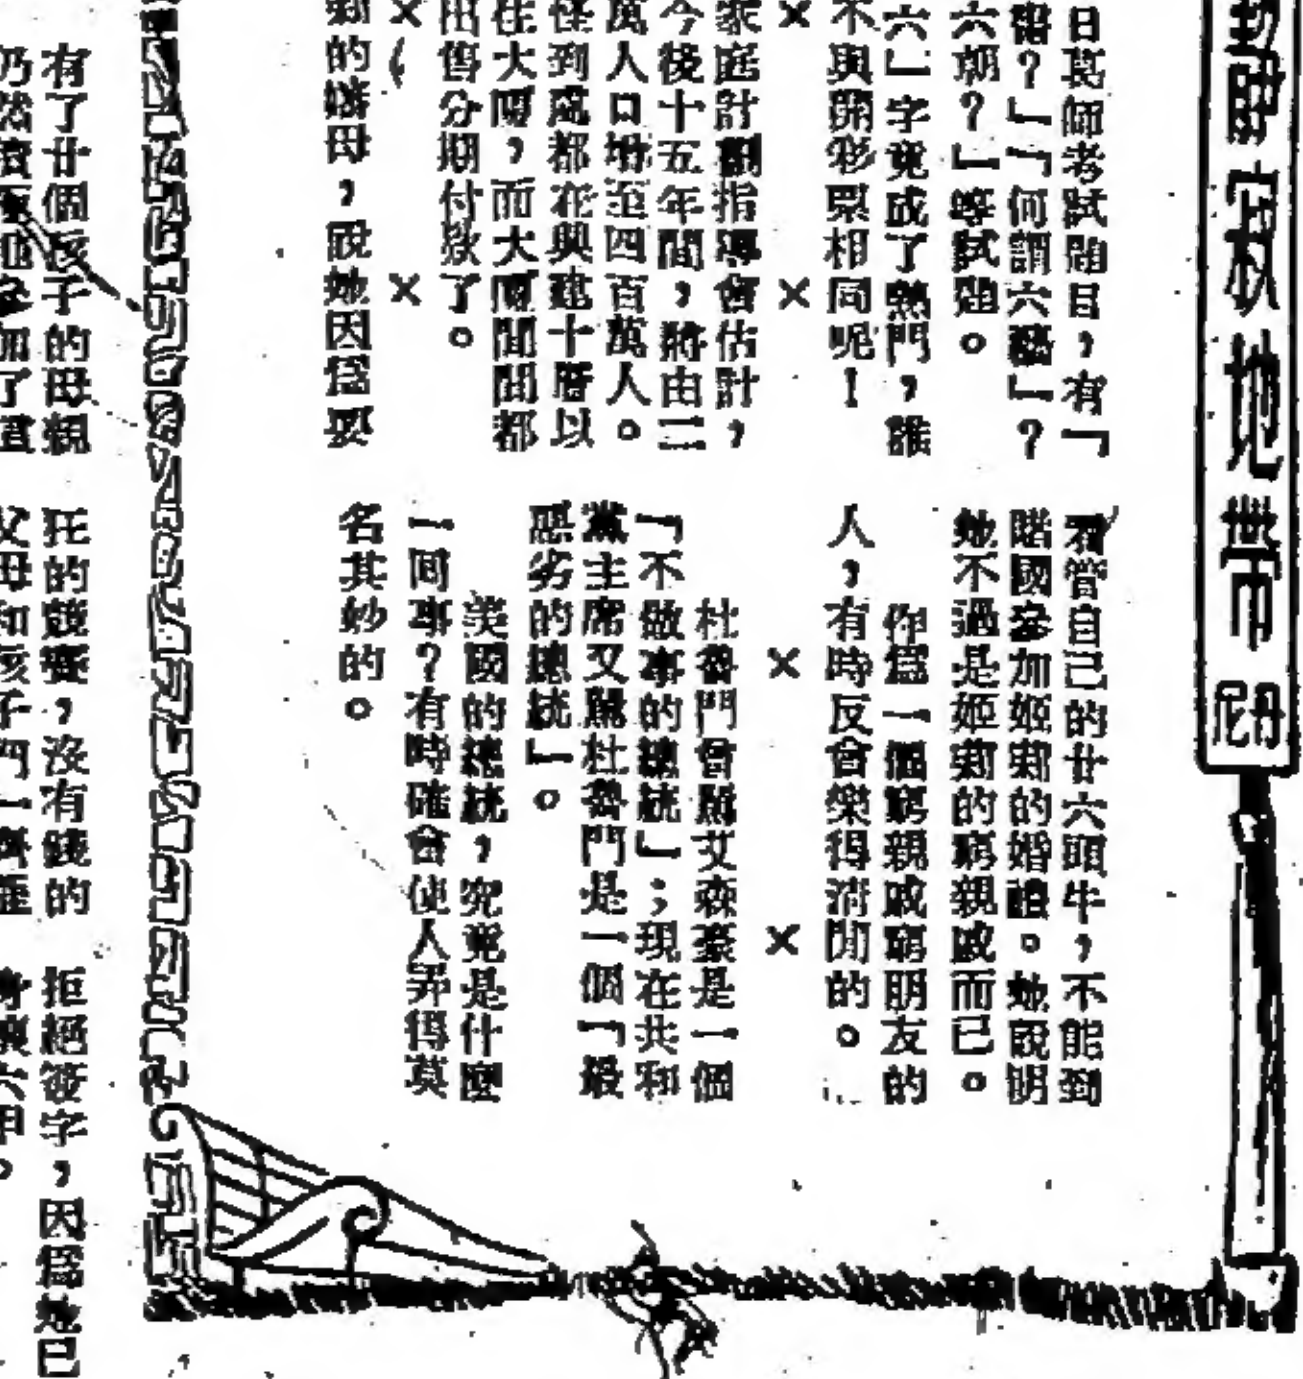 靜寂地帶
丹尼
日葛師考試題目,有「
?」「何謂六藝」?
六朝?」等試題。
六」字竟成了熱門,誰
不與開彩票相同呢!
×
×
家庭計劃指導會估計,
今後十五年間,將由二
萬人口增至四百萬人。
怪到處都在興建十層以
在大廈,而大廈間間都
出售分期付款了。
×
×
莉的嬸母,說她因爲要
看管自己的廿六頭牛,不能到
賭國參加姬莉的婚禮。她說明
她不過是姬莉的窮親戚而已。
作爲一個窮親戚窮朋友的
人,有時反會樂得清閒的。
×
×
杜魯門曾罵艾森豪是一個
「不做事的總統」;現在共和
黨主席又罵杜魯門是一個「最
惡劣的總統」。
美國的總統,究竟是什麼
一回事?有時確會使人弄得莫
名其妙的。
有了廿個孩子的母親
仍然
參加了這
狂的競賽,沒有錢的
父母和孩子們一齊
拒絕簽字,因爲她已
身懷六甲。